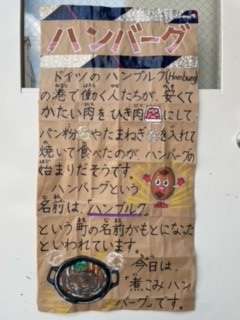 ハンバーグ
ドイツのハンブルク(Hamburg)
の港で働く人たちが、安くて
かたい肉をひき肉にして
パン粉やたまねぎを入れて
焼いて食べたのが ハンバーグの
始まりだそうです。
ハンバーグという
名前は「ハンブルク」
という町の名前がもとになった
といわれています。
今日は
"煮こみハン
バーグ"です。